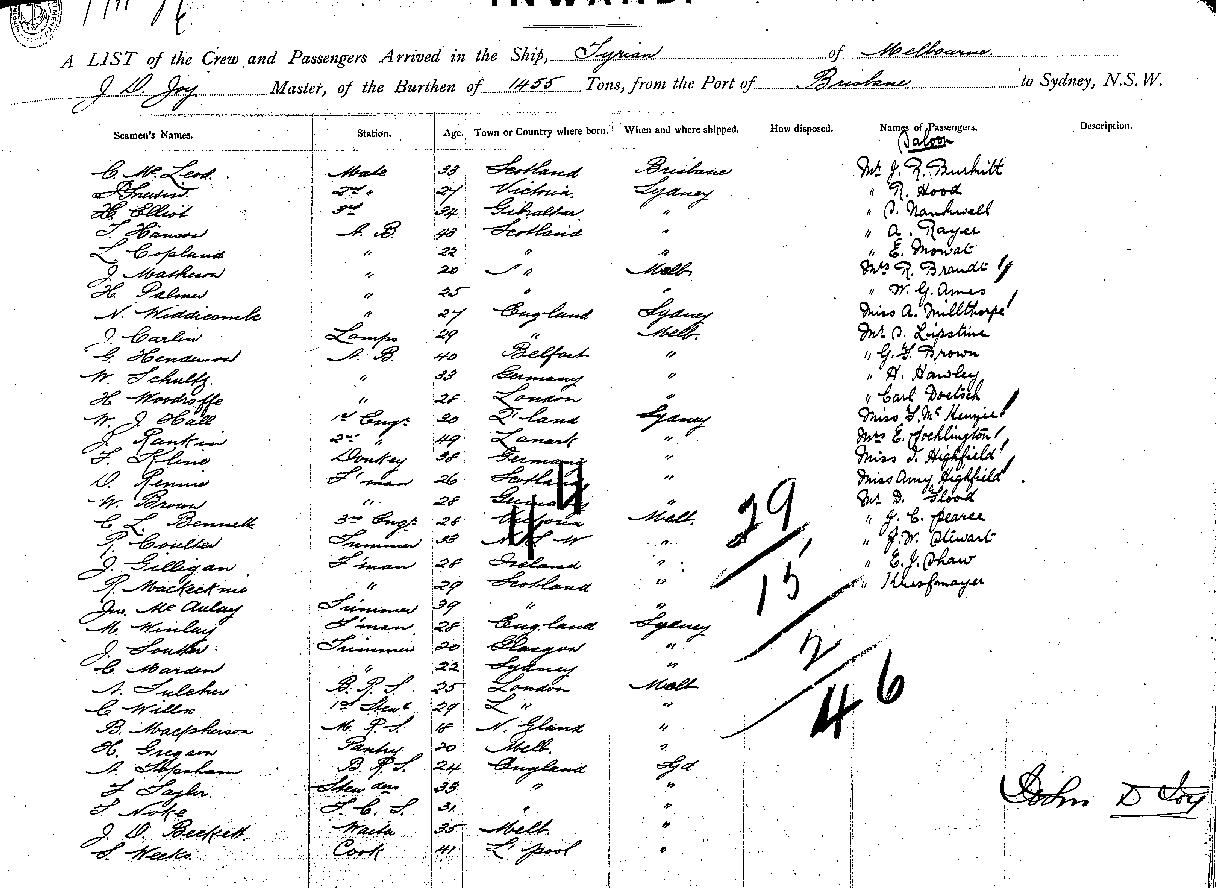 INWARD.
A LIST of the Crew and Passengers Arrived in the Ship, Syrian of Melbourne
J D Joy Master, of the Burthen of 1455 Tons, from the Port of Brisbane to Sydney, N.S.W.
Seamen's Names. Station. Age. Town or Country where born. When and where shipped. How disposed. Names of Passengers. Description.
Saloon
C. McLeod Mate 33 Scotland Brisbane Mr J. R. Burkitt
2nd " 27 Victoria Sydney " R. Hood
H. Elliot 3rd 34 Gibraltar " "
T Hanson A. B. 43 Scotland " " A. Rayer
L Copland " 22 " " " E. Mowat
J. Matheson " 20 " " Melb. Mrs R. Brandt
H. Palmer " 25 " " " W. G. Ames
N. Widdicomb " 27 England Sydney Miss A. Millthorpe
J. Carlin Lamps 29 " Melb. Mr S. Lipstine
G. Henderson A. B. 40 Belfast " " G. F. Brown
W. Schultz " 33 Germany " " H. Hawley
H Woodroffe " 28 London " " Carl Doetsch
W. J. Hall 1st Engr 30 L'land Sydney Miss F. McKenzie
J. Rankin 2nd " 49 Lanark " Mrs E. Pocklington
F. Kline Donkey 38 Germany " Miss I. Highfield
D. Rennie F'man 26 Scotland " Miss Amy Highfield
W. Brown " 28 Germany " Mr D. Flood
C. L. Bennett 3rd Engr 26 Victoria Melb. " J. C. Pearce
R. Coulter Trimmer 33 N. S. W " " J. W. Stewart
J. Gilligan F'man 28 Ireland " " E. J. Shaw
R. Mackecknie " 29 Scotland " "
Jno. McAulay Trimmer 39 " "
M. Winlay F'man 28 England Sydney
J. Souter Trimmer 20 Glasgow "
C. Marden " 22 Sydney "
A. Fulcher B. R. S. 25 London Melb
C. Wills 1st Stewd 29 L " "
B. Macpherson M. R. S. 18 N. Gland "
H. Gregson Pantry 20 Melb. "
A. B. R. S. 24 England Syd
F Taylor 33 " "
T. Noke F. C. S. 31 " "
J. D. Beckett Waiter 35 Melb. "
S. Weeks Cook 41 L'pool "
29
15
2
46
John D Joy